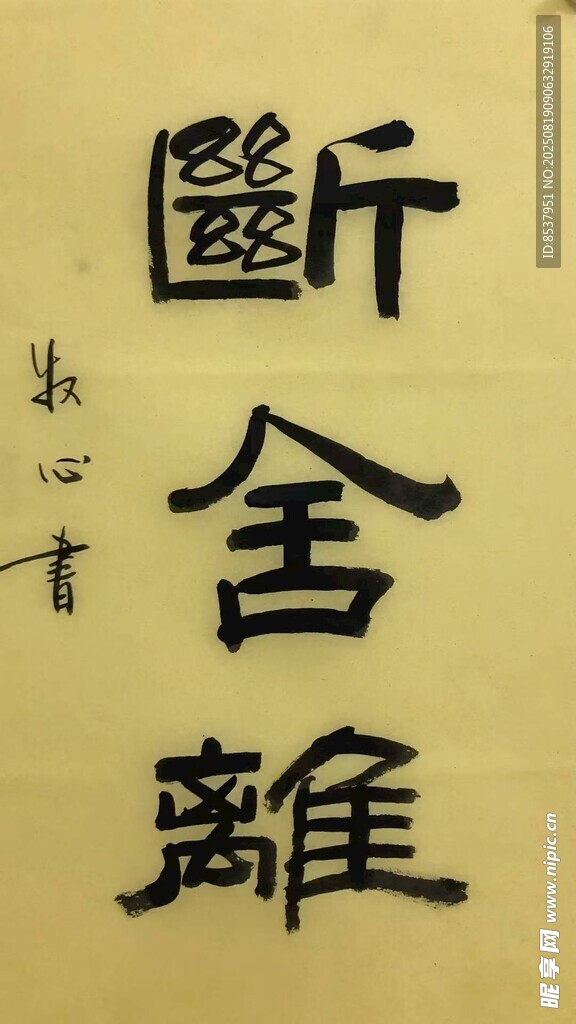 斷舍離
牧心書
ID:8537951 NO:20250819090632919106
昵享网 www.nipic.cn